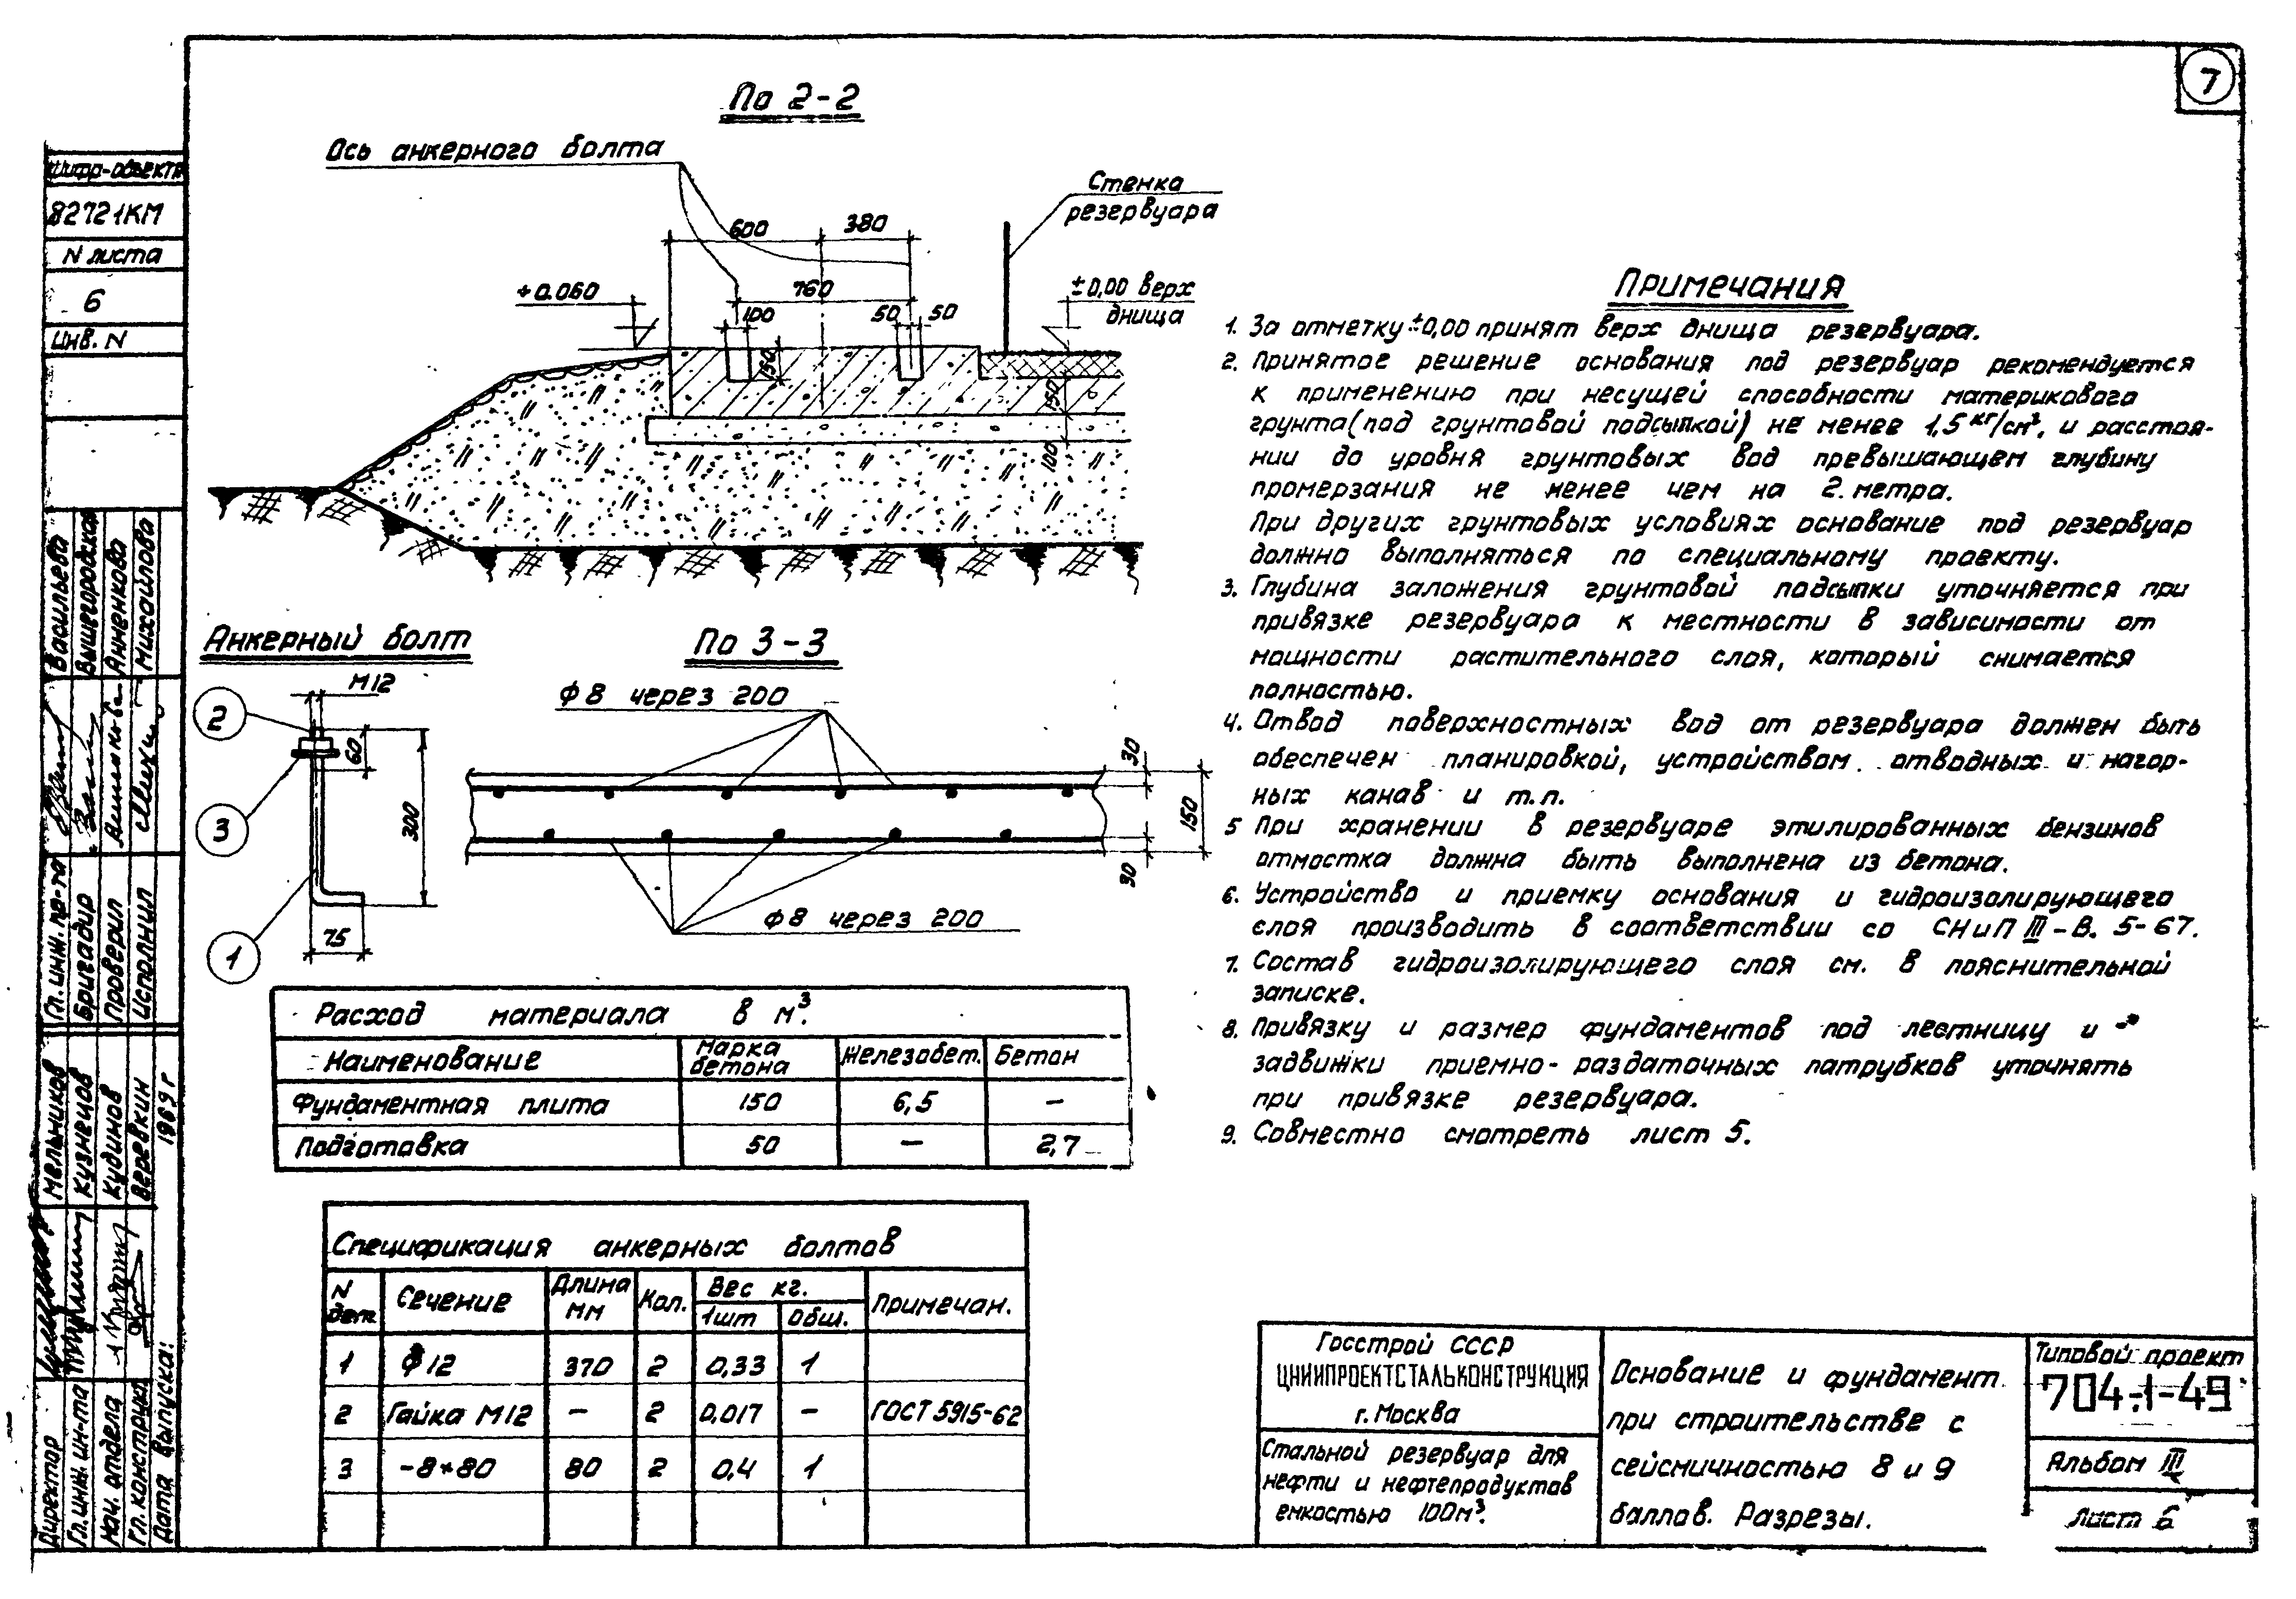 7
По 2-2
Ось анкерного болта
Стенка
резервуара
600
380
+0.060
760
±0,00 верх
днища
100
50
50
150
150
100
Анкерный болт
М12
2
60
3
300
1
75
По 3-3
ф8 через 200
30
150
30
ф8 через 200
Примечания
1. За отметку ±0,00 принят верх днища резервуара.
2. Принятое решение основания под резервуар рекомендуется
к применению при несущей способности материкового
грунта (под грунтовой подсыпкой) не менее 1,5 кг/см², и расстоя-
нии до уровня грунтовых вод превышающем глубину
промерзания не менее чем на 2. метра.
При других грунтовых условиях основание под резервуар
должно выполняться по специальному проекту.
3. Глубина заложения грунтовой подсыпки уточняется при
привязке резервуара к местности в зависимости от
мощности растительного слоя, который снимается
полностью.
4. Отвод поверхностных вод от резервуара должен быть
обеспечен планировкой, устройством отводных и нагор-
ных канав и т.п.
5 При хранении в резервуаре этилированных бензинов
отмостка должна быть выполнена из бетона.
6. Устройство и приемку основания и гидроизолирующего
слоя производить в соответствии со СНиП III-В. 5-67.
7. Состав гидроизолирующего слоя см. в пояснительной
записке.
8. Привязку и размер фундаментов под лестницу и
задвижки приемно-раздаточных патрубков уточнять
при привязке резервуара.
9. Совместно смотреть лист 5.
Расход материала в м³.
Наименование Марка бетона Железобет. Бетон
Фундаментная плита 150 6,5 —
Подготовка 50 — 2,7
Спецификация анкерных болтов
N дет. Сечение Длина мм Кол. Вес кг. Примечан.
1шт Общ.
1 ф12 370 2 0,33 1
2 Гайка М12 — 2 0,017 — ГОСТ 5915-62
3 -8×80 80 2 0,4 1
Госстрой СССР
ЦНИИПРОЕКТСТАЛЬКОНСТРУКЦИЯ
г. Москва
Стальной резервуар для
нефти и нефтепродуктов
емкостью 100м³.
Основание и фундамент
при строительстве с
сейсмичностью 8 и 9
баллов. Разрезы.
Типовой проект
704-1-49
Альбом III
Лист 6
Шифр-объекта
82721КМ
N листа
6
Инв. N
Гл. инж. пр-та Васильева
Бригадир Вышегородская
Проверил Анненкова
Исполнил Михайлова
Директор Мельников
Гл. инж. ин-та Кузнецов
Нач. отдела Кудинов
Гл. конструкт. Веревкин
Дата выпуска: 1969 г